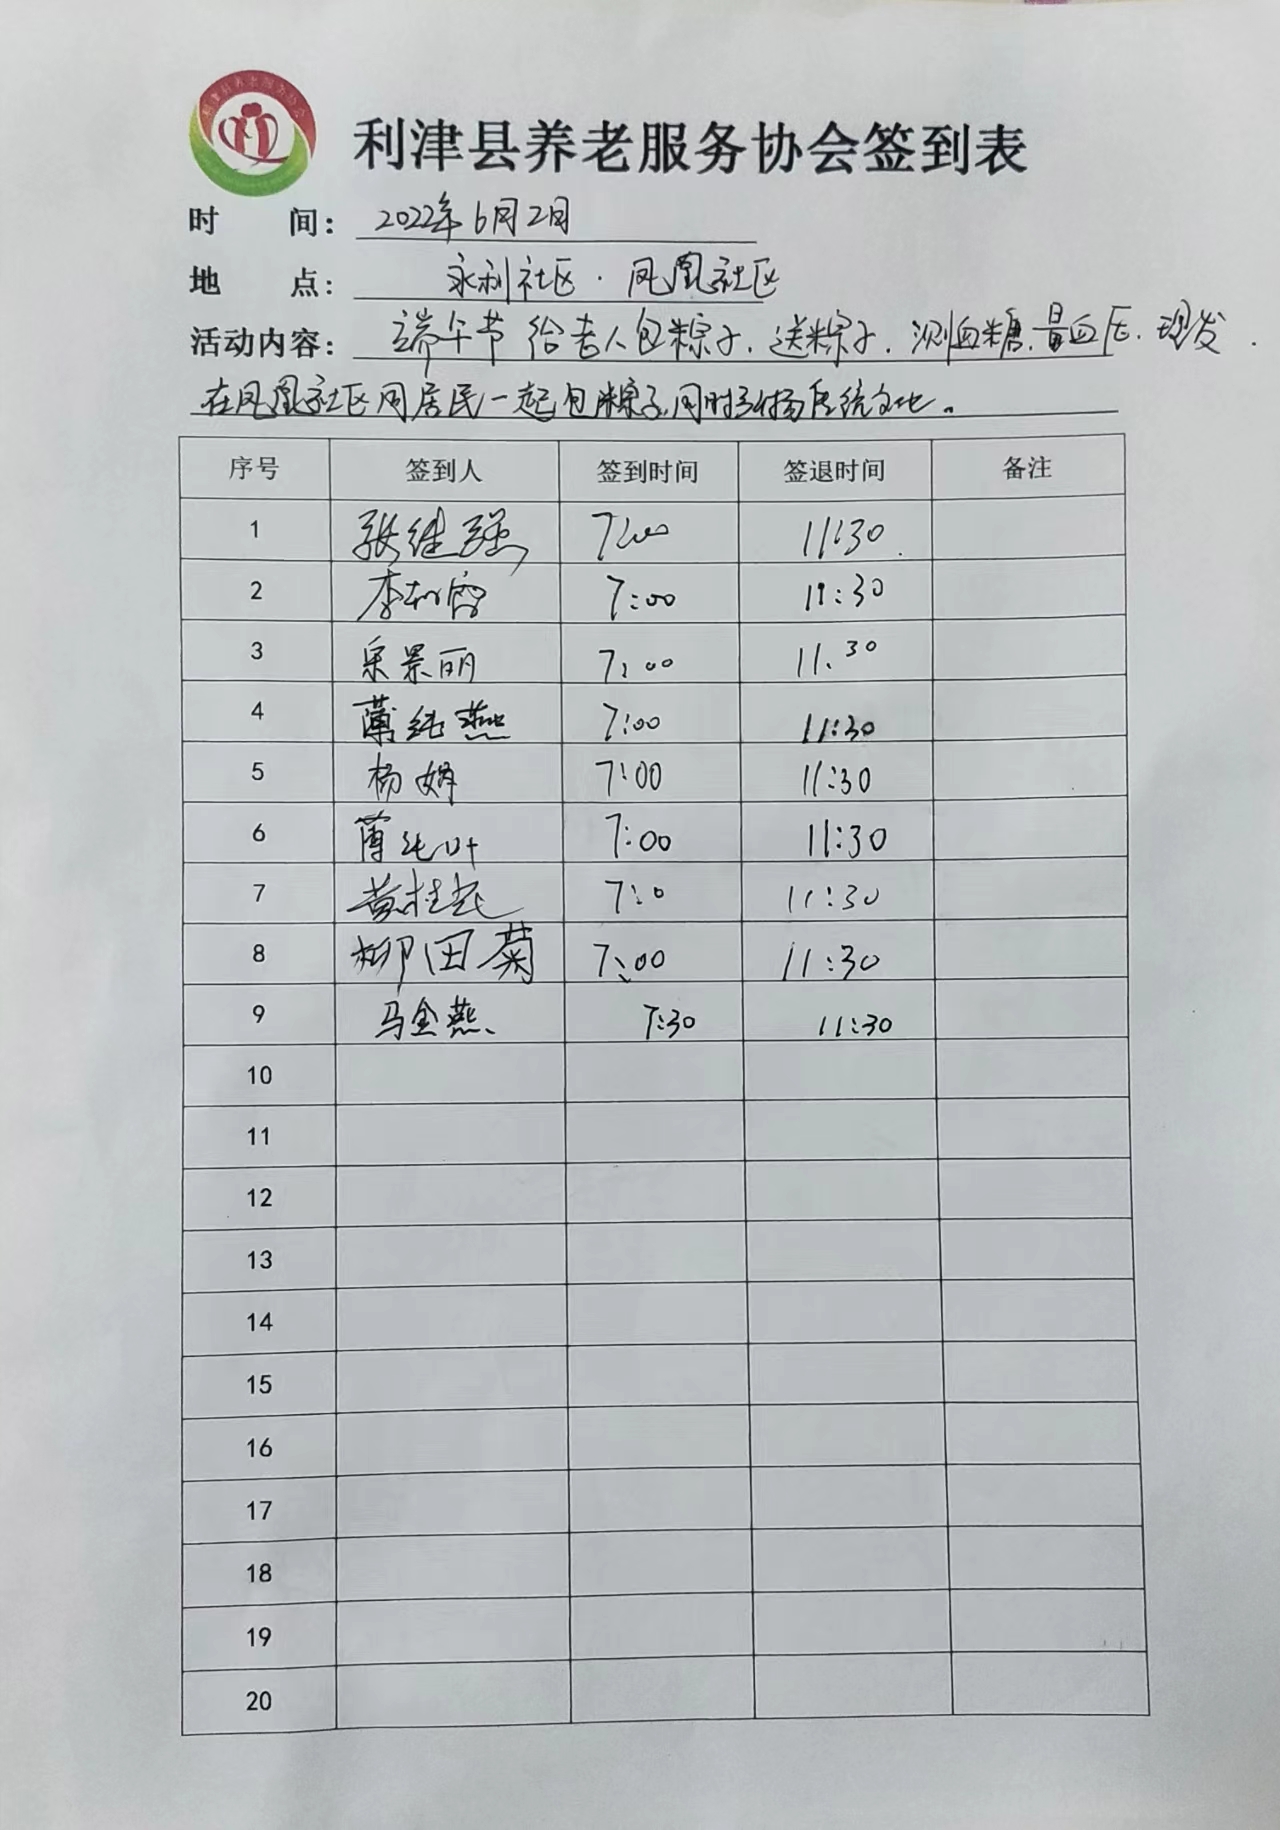 利津县养老服务协会
利津县养老服务协会签到表
时 间: 2022年6月2日
地 点: 永利社区·凤凰社区
活动内容: 端午节给老人包粽子.送粽子.测血糖.量血压.理发.
在凤凰社区同居民一起包粽子,同时弘扬传统文化。
序号 签到人 签到时间 签退时间 备注
1 张继强 7:00 11:30
2 李 7:00 11:30
3 景丽 7:00 11.30
4 薄纯燕 7:00 11:30
5 杨娇 7:00 11:30
6 薄纯叶 7:00 11:30
7 黄桂花 7:0 11:30
8 柳田菊 7:00 11:30
9 马金燕 7:30 11:30
10
11
12
13
14
15
16
17
18
19
20